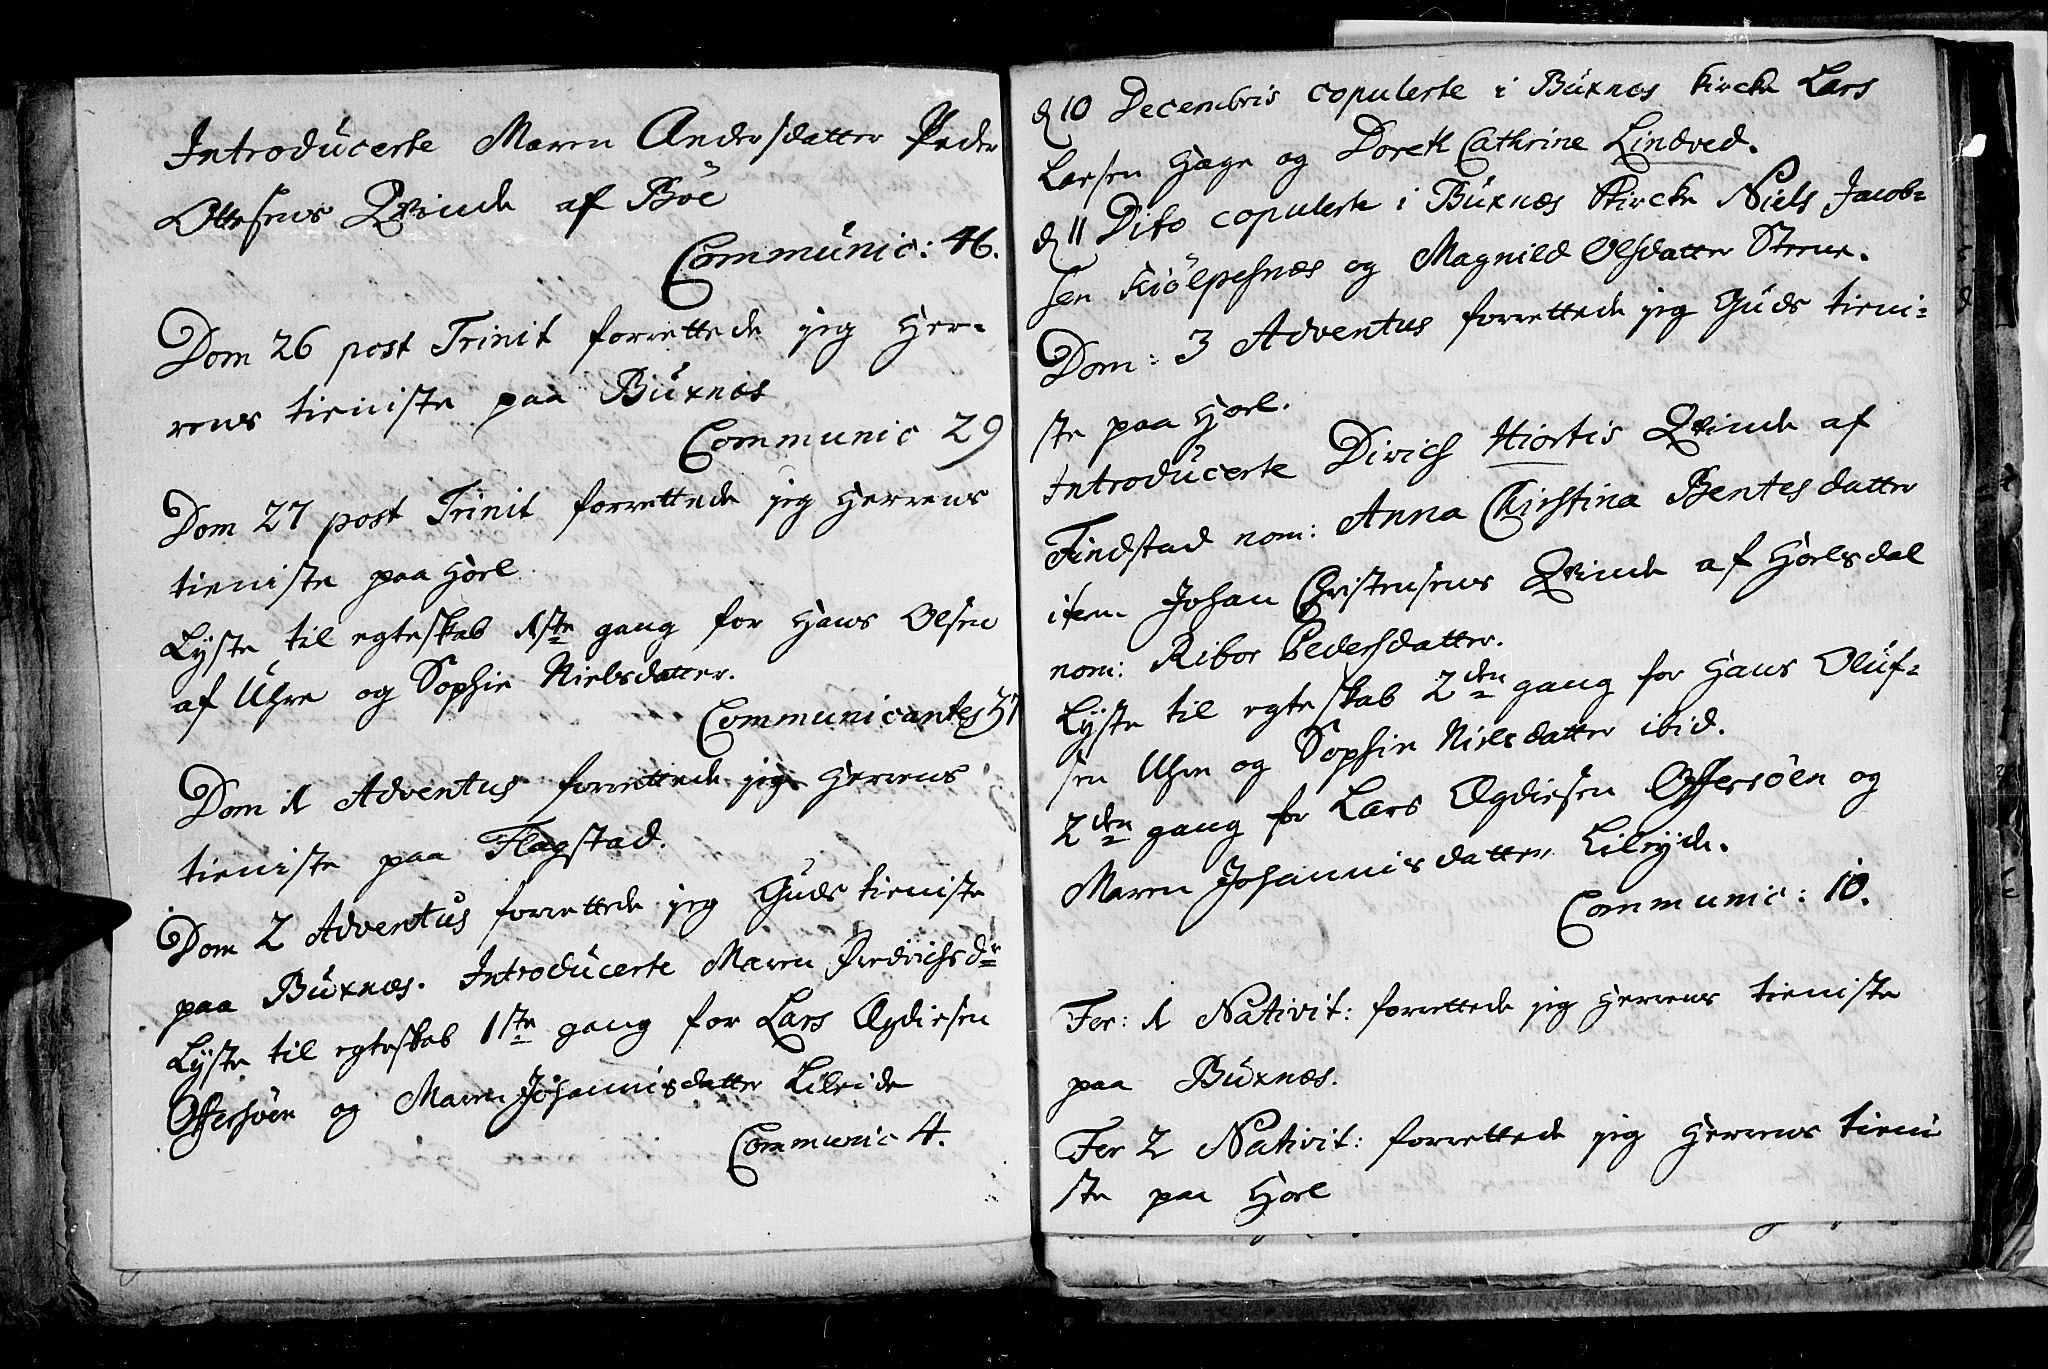 Introdúcerte Maren Andersdatter Peder
Ottesens Qvinde af Böe
Commúnic: 46.
Dom 26 post Trinit forrettede jeg Her-
rens tieniste paa Búxnæs
Communic 29
Dom 27 post Trinit forrettede jeg Herrens
tieniste paa Hörl.
Lyste til egteskab 1ste gang for Hans Olsen
af Uhre og Sophie Nielsdatter.
Communicantes 37
Dom 1 Adventus forrettede jeg Herrens
tieniste paa Flagstad.
Dom 2 Adventus forrettede jeg Guds tieniste
paa Búxnæs. Introdúcerte Maren Fredrichsdr
Lyste til egteskab 1ste gang for Lars Ægdiesen
Offersöen og Maren Johannisdatter Lileide
Communic 4.
d 10 Decembris copulerte i Búxnæs kircke Lars
Larsen Hage og Doreth Cathrine Lindved.
d 11 Dito copulerte i Búxnæs Kircke Niels Jacob-
sen Kiölpesnæs og Magnild Olsdatter Steene.
Dom: 3 Adventus forrettede jeg Guds tieni-
ste paa Hörl.
Introdúcerte Dirich Hiortis Qvinde af
Findstad nom: Anna Christina Bentesdatter
item Johan Christensens Qvinde af Hörlsdal
nom: Ribor Pedersdatter.
Lyste til egteskab 2den gang for Hans Olúf-
sen Uhre og Sophie Nielsdatter ibid.
2den gang for Lars Ægdiesen Offersöen og
Maren Johannisdatter Lileyde.
Communic: 10.
Fer: 1 Nativit: forrettede jeg Herrens tieniste
paa Búxnæs.
Fer 2 Nativit: forrettede jeg Herrens tieni
ste paa Hörl